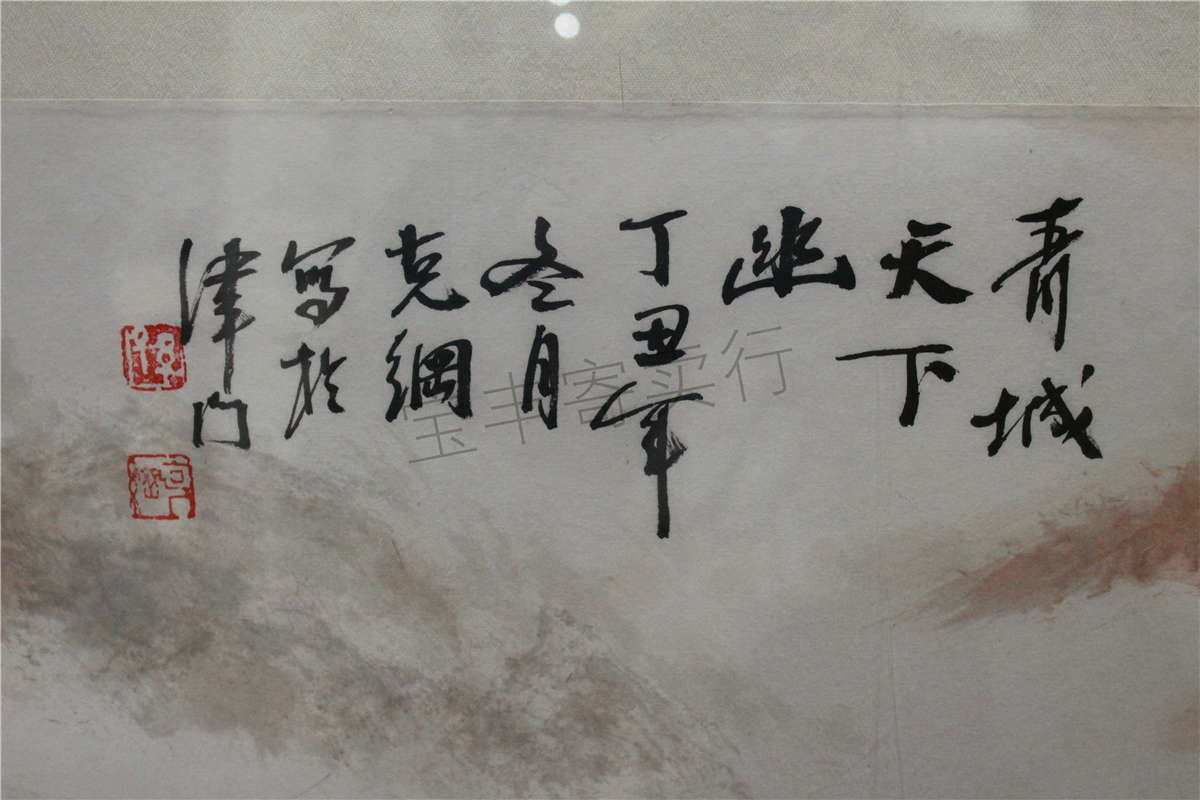 青城
天下
幽
丁丑年
冬月
克綱
写於
津门
宝丰寄卖行